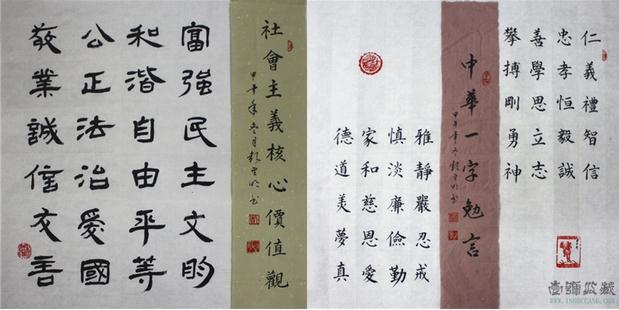 仁義禮智信
忠孝恒毅誠
善學思立志
攀搏剛勇神
中華一字勉言
甲午年冬月
雅靜嚴忍戒
慎淡廉儉勤
家和慈恩愛
德道美夢真
社會主義核心價值觀
甲午年冬月
富強民主文明
和諧自由平等
公正法治愛國
敬業誠信友善